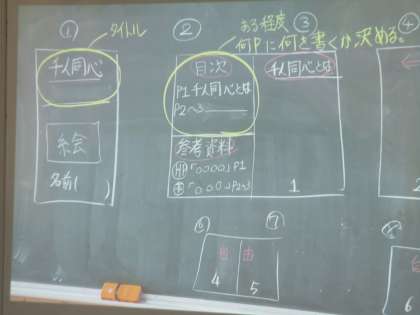 ①
タイトル
千人同心
絵
名前( )
②
ある程度
何Pに何を書くか決める。
目次
P1 千人同心とは
P2〜3
参考資料
HP「○○○○」P1
本「○○○」P2〜3
③
千人同心とは
1
④
⑥
⑦
自由
4
5
6